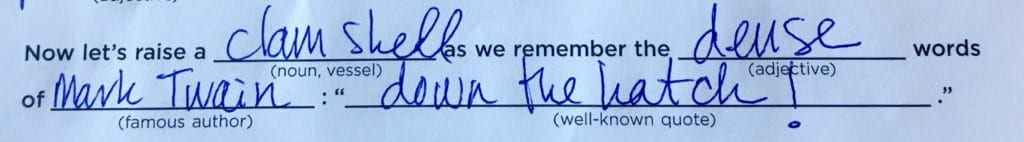 (adjective)
Now let's raise a clam shell as we remember the dense words
(noun, vessel) (adjective)
of Mark Twain : " down the hatch! ."
(famous author) (well-known quote)